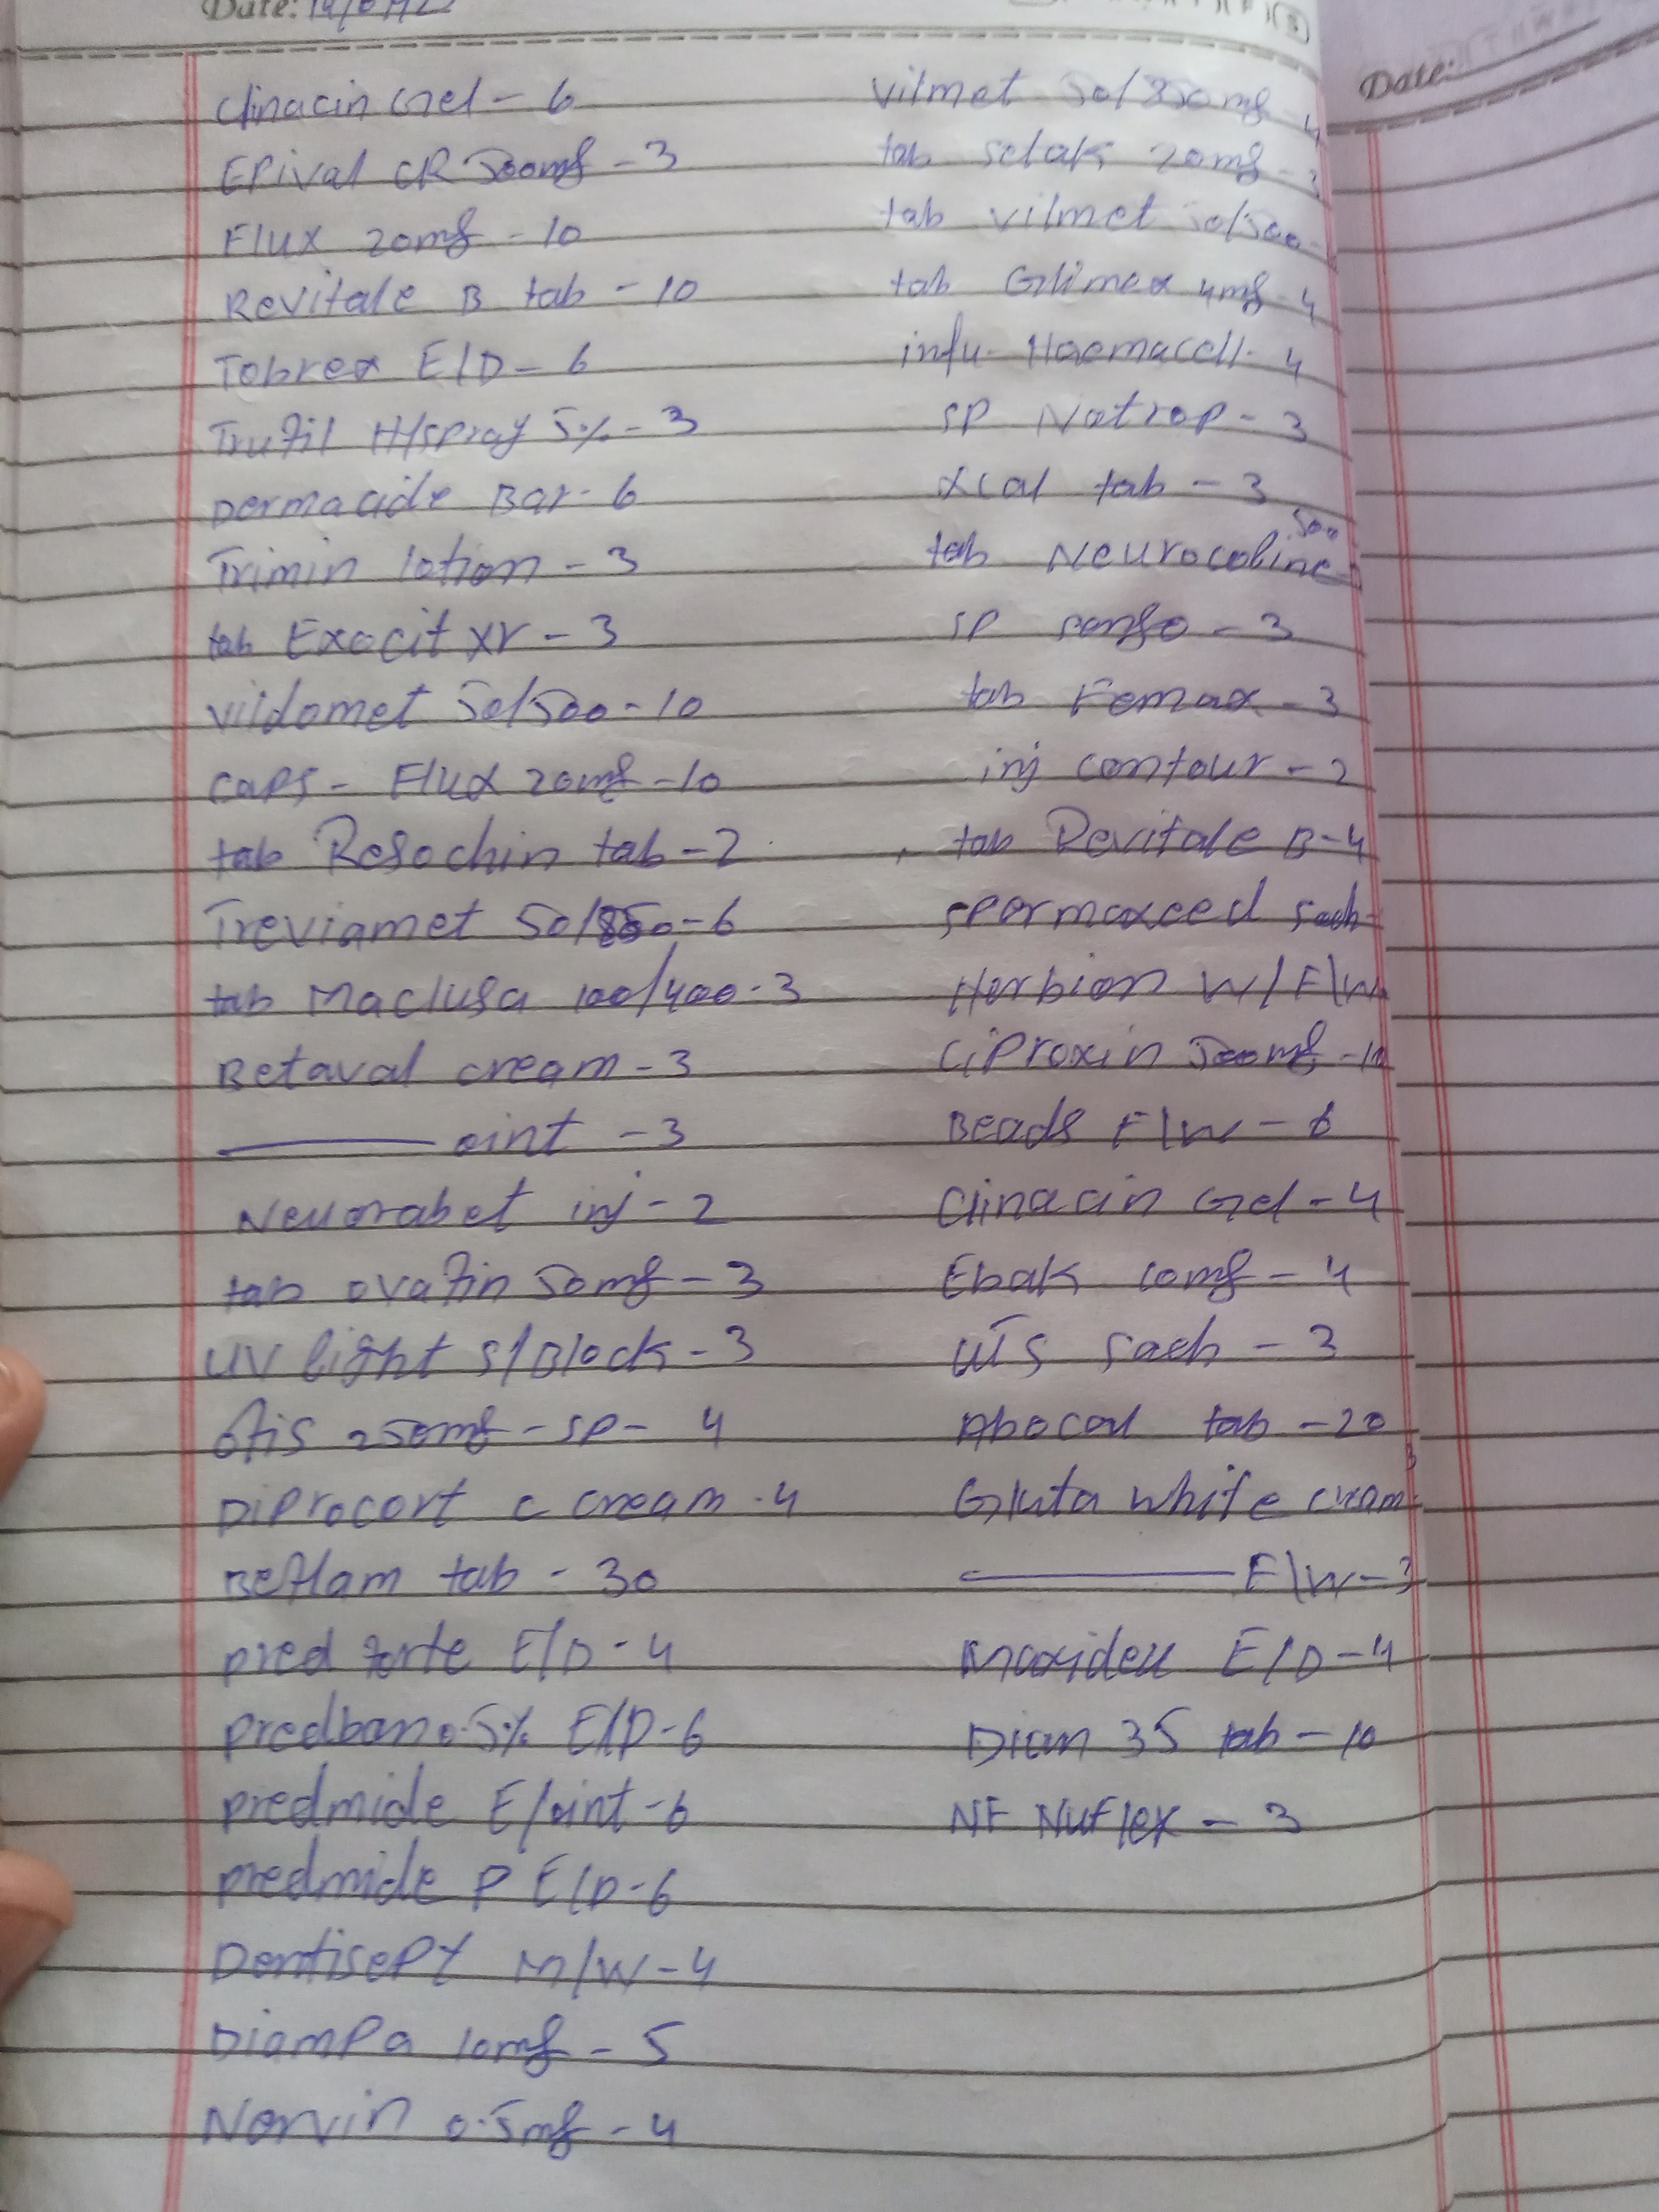 Date:
Clinacin Gel - 6
EPival CR 500mg - 3
Flux 20mg - 10
Revitale B tab - 10
Tobrex E/D - 6
Trufil H/spray 5% - 3
Dermacide Bar - 6
Trimin lotion - 3
tab Exocit XR - 3
vildomet 50/500 - 10
caps - Flux 20mg - 10
tab Resochin tab - 2
Treviamet 50/850 - 6
tab Maclusa 100/400 - 3
Betaval cream - 3
——— oint - 3
Neurobet inj - 2
tab ovafin 50mg - 3
UV light S/Block - 3
250mg - SP - 4
Diprocort c cream - 4
Beflam tab - 30
pred forte E/D - 4
predban 0.5% E/D - 6
predmide E/oint - 6
predmide P E/D - 6
DentisePt M/W - 4
DiamPa 10mg - 5
Nervin 0.5mg - 4
vilmet 50/850mg - 4
tab selak 20mg - 3
tab vilmet 50/500 -
tab Glimex 4mg - 4
infu - Haemacell - 4
SP Natrop - 3
xcal tab - 3
500
tab Neurocoline
SP - 3
tab Femax - 3
inj contour - 2
tab Revitale B - 4
spermaxeed sach -
Herbion W/F/W
CiProxin 500mg - 10
Beads F/W - 6
Clinacin Gel - 4
Ebak 10mg - 4
sach - 3
Abocal tab - 20
Gluta white cream - 3
——— F/W - 3
Maxidex E/D - 4
Dian 35 tab - 10
NF Nuflex - 3
Date: